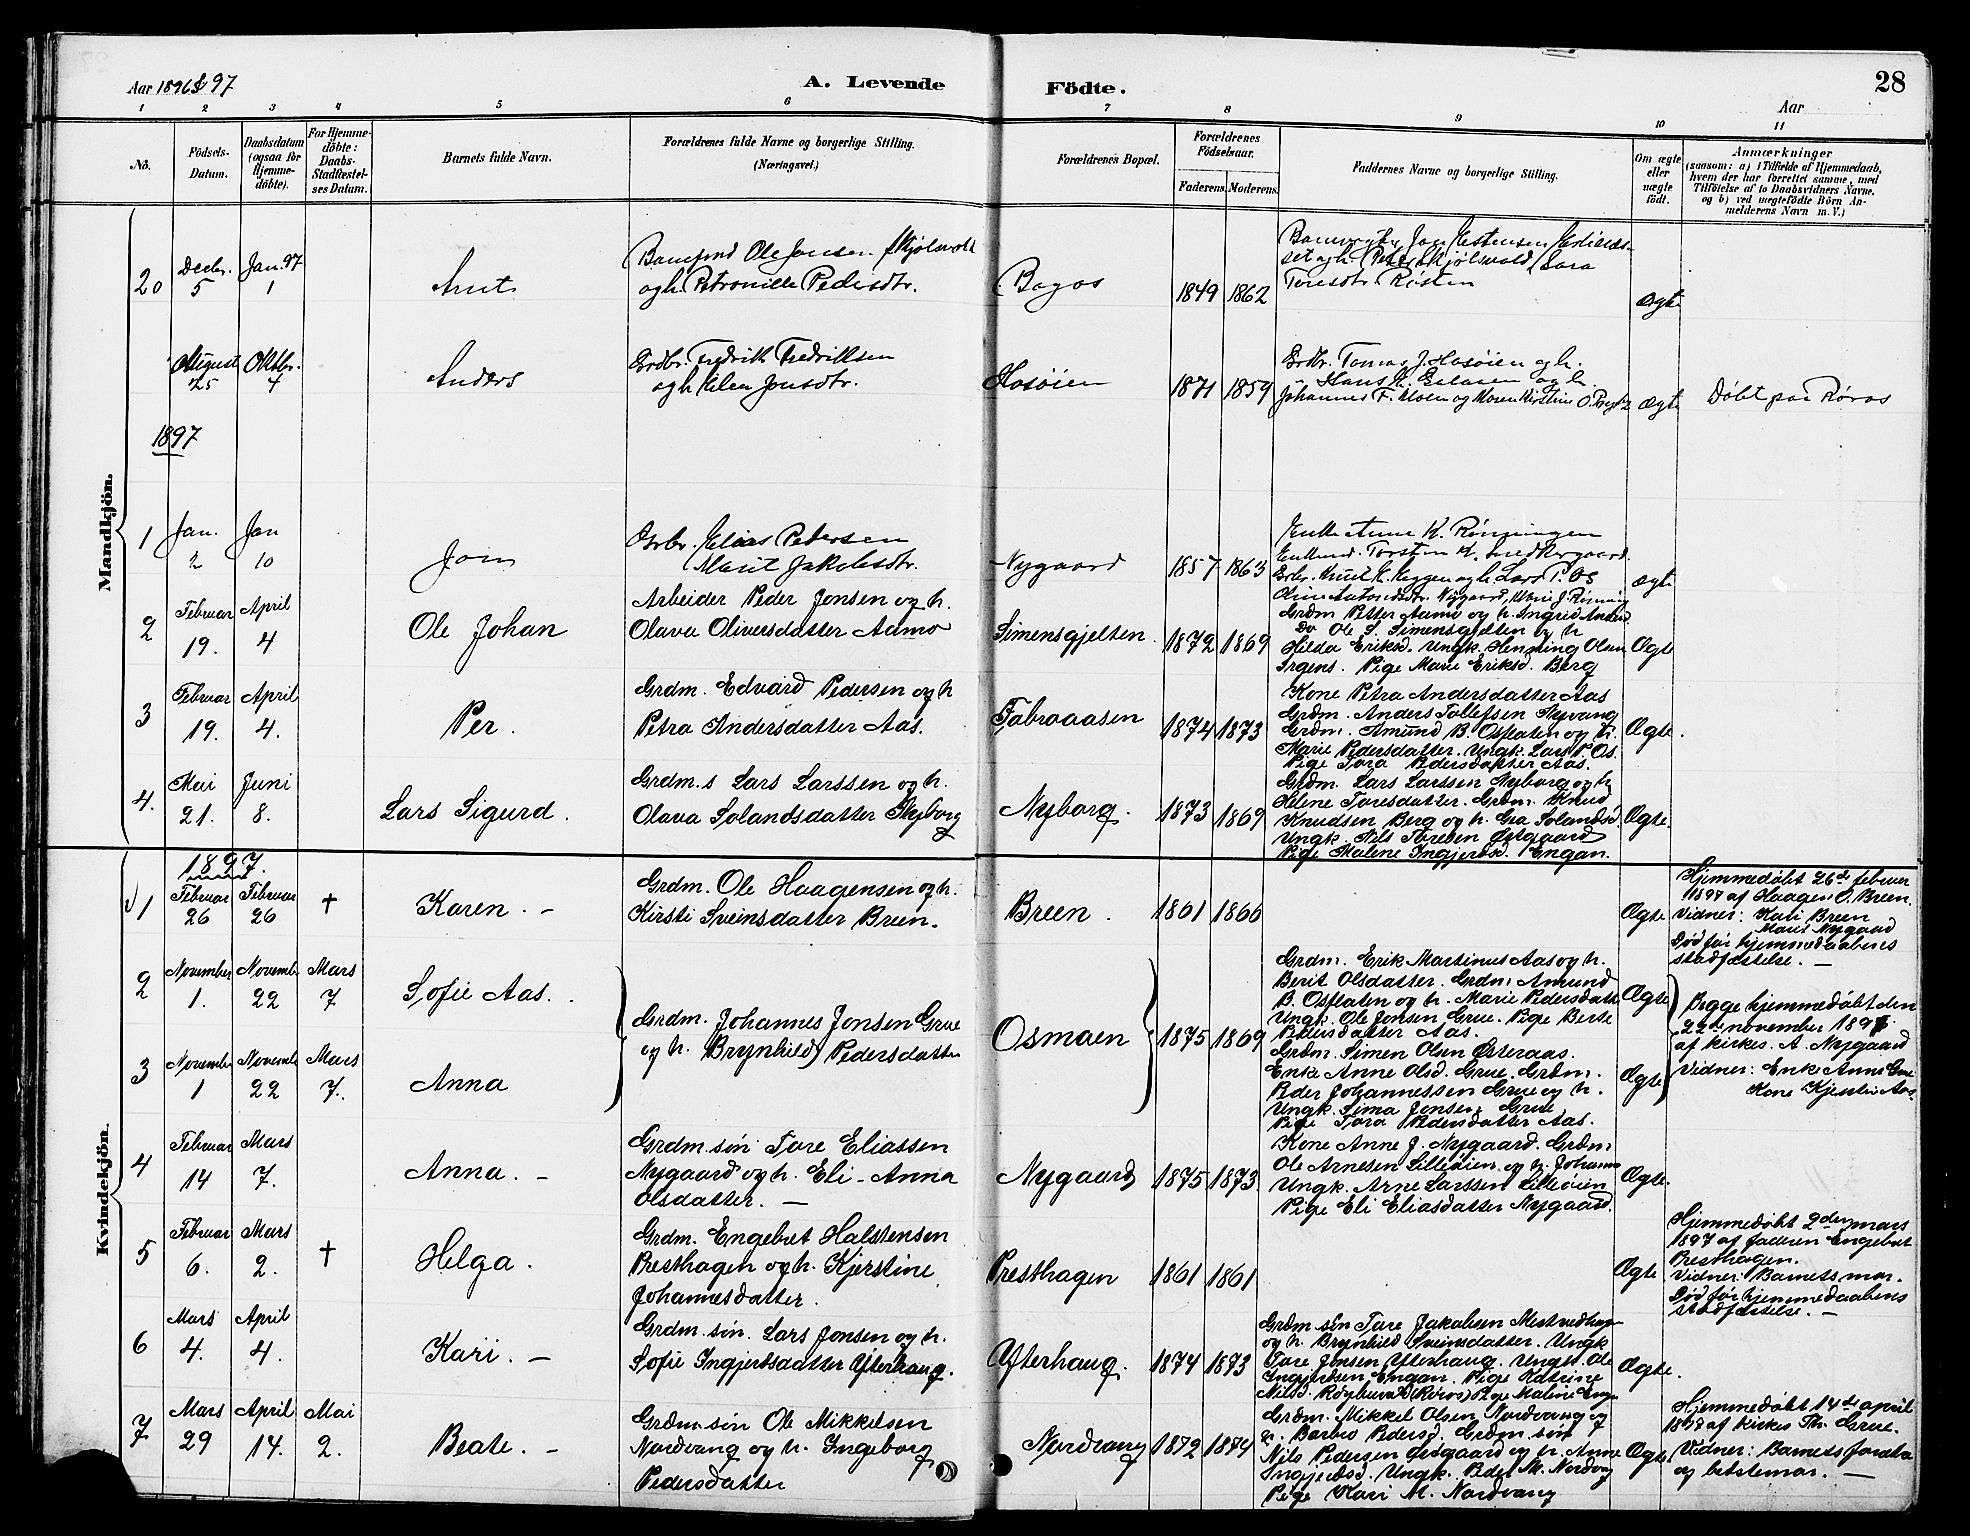 Aar 1896 & 97
A. Levende Födte.
28
Aar
1 2 3 4 5 6 7 8 9 10 11
No.
Födsels-Datum.
Daabsdatum (ogsaa for Hjemme-döbte).
For Hjemme-döbte: Daabs-Stadfæstel-ses Datum.
Barnets fulde Navn.
Forældrenes fulde Navne og borgerlige Stilling. (Næringsvei.)
Forældrenes Bopæl.
Forældrenes Födselsaar.
Faderens. Moderens.
Faddernes Navne og borgerlige Stilling.
Om ægte eller uægte födt.
Anmærkninger
(saasom: a) i Tilfælde af Hjemmedaab, hvem der har forrettet samme, med Tilföielse af to Daabsvidners Navne. og b) ved uægtefödte Börn An-melderens Navn m. V.)
Mandkjön.
20 Decbr. 5 Jan. 97 1
Ole Jonsen
og h. Petronille Pedersdtr.
1849 1862
ægte
August 25 Oktbr. 4
Anders
Grdbr. Fredrik Fredriksen
og h. Elen Jonsdtr.
Hosøien
1871 1859
Grdbr. Tomas J. Hosøien og h.
ægte
Døbt paa Røros
1897
1 Jan. 2 Jan 10
Jon
Elias Pedersen
Marit Jakobsdtr.
Nygaard
1857 1863
Enke Anne K. Rønningen
ægte
2 Februar 19. April 4
Ole Johan
Arbeider Peder Jonsen og h.
Olava Oliversdatter Aamo
Simensgjelten
1872 1869
Grdm Petter Aamo og h. Ingrid
Do Ole S. Simensgjelten og h
Hilda Eriksd. Ungk. Henning Olsen
Irgens. Pige Marie Eriksd. Berg
Ægte
3 Februar 19. April 4.
Per.
Grdm. Edvard Pedersen og h
Petra Andersdatter Aas.
Fabroaasen
1874 1873
Kone Petra Andersdatter Aas
Grdm. Anders Tollefsen Nyvang
Grdm. Amund B. Osflaten og h.
Marie Pedersdatter. Ungk. Lars P. Os.
Pige Tora Pedersdatter Aas.
Ægte.
4. Mai 21. Juni 8.
Lars Sigurd.
Grdm.s Lars Larssen og h.
Olava Solandsdatter Nyborg
Nyborg.
1873 1869
Grdm. Lars Larssen Nyborg og h
Helene Taresdatter. Grdm. Knud
Knudsen Berg og h. Gea Solandsd.
Ungk. Nils Toresen Østgaard
Pige Malene Ingjertsd. Engan.
Ægte.
Kvindekjön.
1897.
1 Februar 26 Februar 26 †
Karen. -
Grdm. Ole Haagensen og h.
Kirsti Sveinsdatter Breen.
Breen.
1861 1866
Ægte
Hjemmedøbt 26de februar
1897 af Haagen O. Breen.
Vidner: Kari Breen
Marit Nygaard
Død før hjemmedaabens
stadfæstelse. —
2 November 1. Novembr 22 Mars 7
Sofie Aas.
Grdm. Johannes Jonsen Grue
og h. Brynhild Pedersdatter
Osmoen
1875 1869
Grdm. Erik Martinus Aas og h.
Berit Olsdatter. Grdm. Amund
B. Osflaten og h. Marie Pedersdatt.
Ungk. Ole Jonsen Grue. Pige Berte
Pedersdatter Aas.
Ægte
Begge hjemmedøbt den
22de november 1896
af kirkes. A. Nygaard
Vidner: Enke Anne Grue
Kone Kjersti Aas.
3 November 1 Novembr 22 Mars 7.
Anna
Grdm. Simen Olsen Østeraas.
Enke Anne Olsd. Grue. Grdm.
Peder Johannessen Grue og h.
Ungk. Sima Jonsen Grue
Pige Tora Pedersdatter Aas.
Ægte
4 Februar 14 Mars 7.
Anna. -
Grdm. søn Tare Eliassen
Nygaard og h. Eli-Anna
Olsdatter. —
Nygaard
1875 1873
Kone Anne J. Nygaard. Grdm
Ole Arnesen Lilleøien og h. Johanna
Ungk. Arne Larssen Lilleøien
Pige Eli Eliasdatter Nygaard.
Ægte.
5 Februar 6. Mars 2. †
Helga.
Grdm. Engebret Halstensen
Presthagen og h. Kjerstine
Johannesdatter.
Presthagen
1861 1861
Ægte
Hjemmedøbt 2den mars
1897 af faderen Engebret
Presthagen.
Vidner: Barnets mor.
Død før hjemmedaabens
stadfæstelse. —
6 Mars 4. April 4.
Kari. -
Grdm. søn. Lars Jonsen og h.
Sofie Ingjertsdatter Ytterhaug.
Ytterhaug.
1874 1873
Grdm. søn Tare Jakobsen
og h. Brynhild Sveinsdatter. Ungk
Tare Jonsen Ytterhaug. Ungk. Ole
Ingjertsen Engan. Pige Katrine
Ægte.
7 Mars 29 April 14. Mai 2.
Beate. -
Grdm. søn Ole Mikkelsen
Nordvang og h. Ingeborg
Pedersdatter
Nordvang
1872 1874
Grdm. Mikkel Olsen Nordvang og
h. Barbro Pedersd. Grdm. søn
Nils Pedersen Østgaard og h. Anne
Ingjertsd. Ungk. Peder M. Nordvang
Pige Kari M. Nordvang
Ægte
Hjemmedøbt 14de april
1897 af kirkes. Th. Grue.
Vidner: Barnets
og bedstemor. —